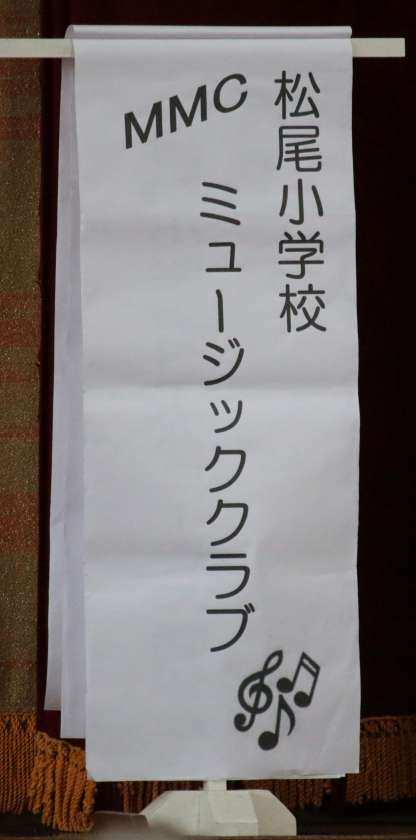 松尾小学校
MMC
ミュージッククラブ